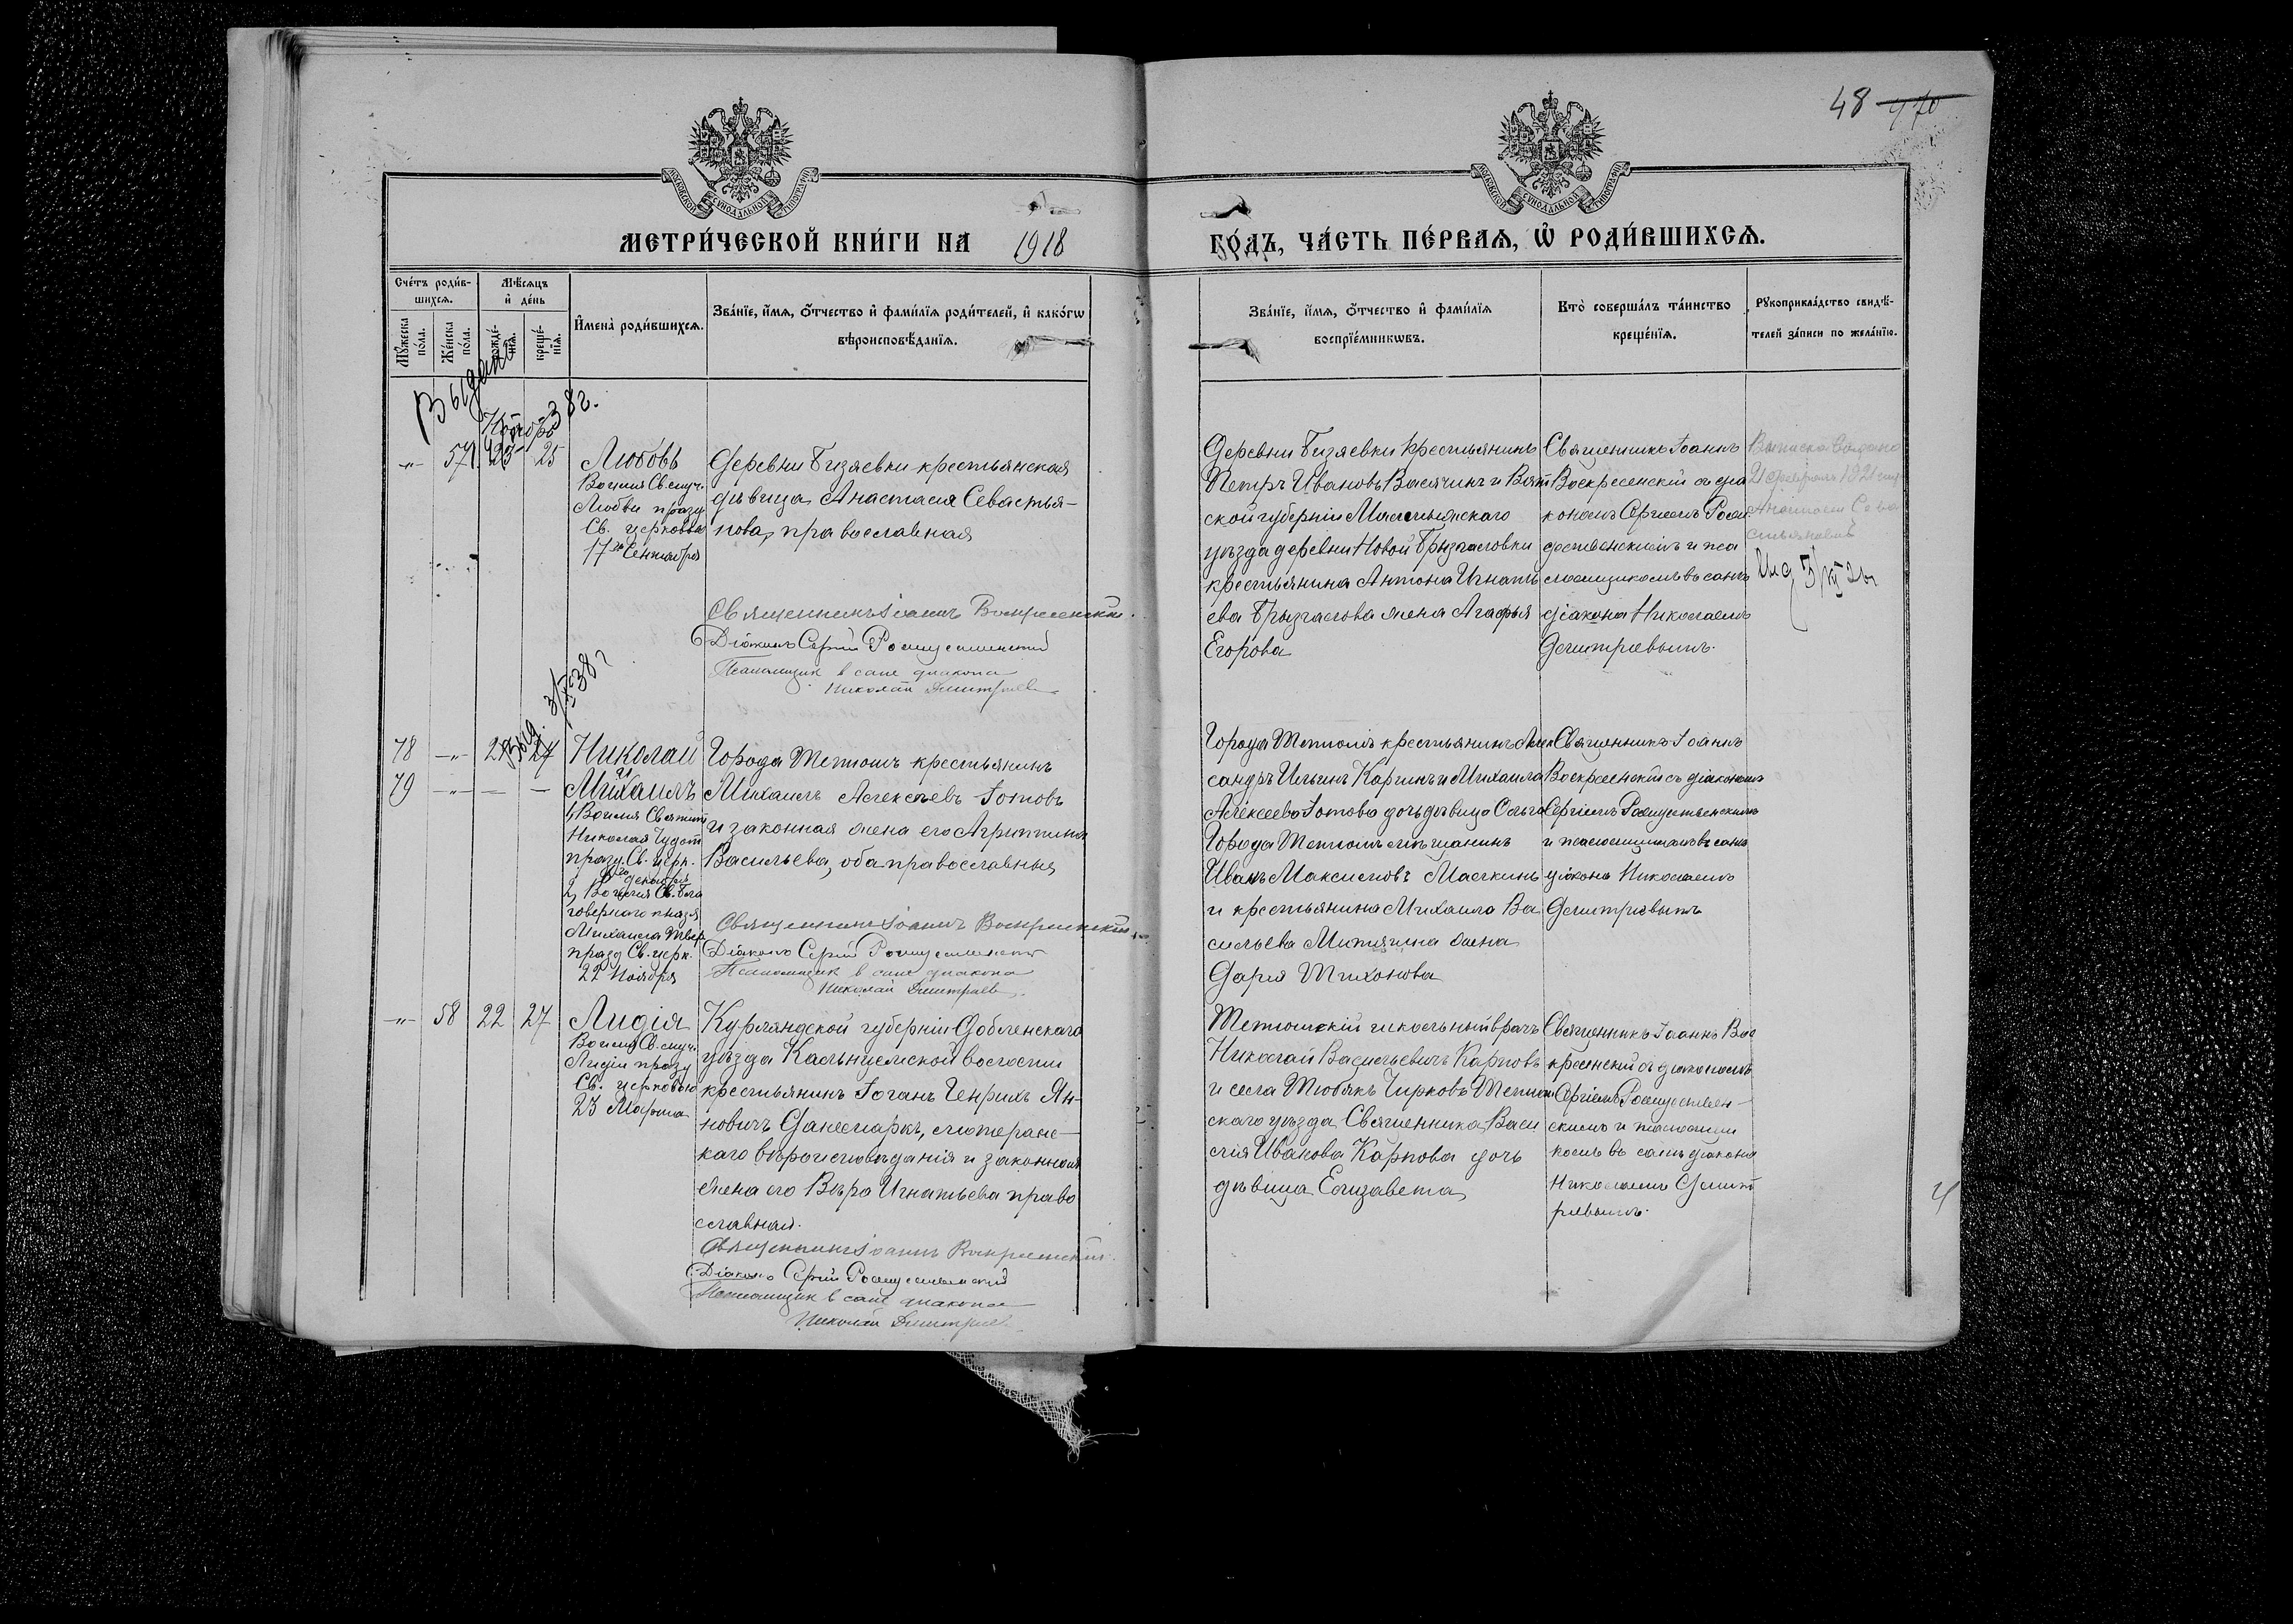 48 470
МЕТРИ́ЧЕСКОЙ КНИ́ГИ НА 1918
ГО́ДЪ, ЧА́СТЬ ПЕ́РВАѦ, Ѡ҆ РОДИ́ВШИХСѦ.
Сче́тъ роди́в-
шихсѧ.
Мѣ́сѧцъ
и҆ де́нь
Мꙋ́жеска
по́ла.
Же́нска
по́ла.
рожде́-
нїѧ.
креще́-
нїѧ.
И҆мена̀ роди́вшихсѧ.
Зва́нїе, и҆́мѧ, ѻ҆́тчество и҆ фами́лїѧ роди́телей, и҆ како́гѡ
вѣроисповѣ́данїѧ.
Зва́нїе, и҆́мѧ, ѻ҆́тчество и҆ фами́лїѧ
воспрїе́мникѡвъ.
Кто̀ соверша́лъ та́инство
креще́нїѧ.
Рꙋкоприкла́дство свидѣ́-
телей за́писи по жела́нїю.
Выдана
38 г.
57 25
Любовь
Во имя Св. муч.
Любви празд
Св. церковью
17го Сентября
Деревни Бизяевки крестьянская
дѣвица Анастасія Севастья-
нова, православная
Священникъ Іоаннъ Воскресенскій
Діаконъ Сергій Рождественскій
Псаломщик в сане диакона
Николай Дмитриев
Деревни Бизяевки крестьянинъ
Петръ Ивановъ Васячинъ и Вят
ской губерніи
уѣзда деревни Новой Брызгаловки
крестьянина Антона Игнать
ева Брызгалова жена Агафья
Егорова
Священникъ Іоаннъ
Воскресенскій съ діа
кономъ Сергіемъ Рож
дественскимъ и пса
ломщикомъ въ санѣ
діакона Николаемъ
Дмитріевымъ.
Выписка выдана
1921 года
Анастасіи Сева
стьяновой
Выд. 3/XI 38 г
78 27 Николай
79 Михаилъ
1, Во имя Святит
Николая Чудот
празд. Св. церк.
6го декабря
2, Во имя Св. Бла
говѣрнаго князя
Михаила Твер
празд Св. церк.
22 Ноября
Города Тетюшъ крестьянинъ
Михаилъ Алексѣевъ Зотовъ
и законная жена его Агриппина
Васильева, оба православные
Священникъ Іоаннъ Воскресенскій
Діаконъ Сергій Рождественскій
Псаломщик в сане диакона
Николай Дмитриев
Города Тетюшъ крестьянинъ Алек
сандръ Ильинъ Каргинъ и Михаила
Алексѣева Зотова дочь дѣвица Ольга
Города Тетюшъ мѣщанинъ
Иванъ Максимовъ Масякинъ
и крестьянина Михаила Ва
сильева Митягина жена
Дарія Тихонова
Священникъ Іоаннъ
Воскресенскій съ діакономъ
Сергіемъ Рождественскимъ
и псаломщикомъ въ санѣ
діакона Николаемъ
Дмитріевымъ
58 22 27 Лидія
Во имя Св. муч.
Лидіи празд
Св. церковью
23 Марта
Курляндской губерніи Добленскаго
уѣзда Кальнцемской волости
крестьянинъ Іоганъ Генрихъ Ян-
новичъ Данемаркъ, лютеранс-
каго вѣроисповѣданія и законная
жена его Вѣра Игнатьева право
славная.
Священникъ Іоаннъ Воскресенскій
Діаконъ Сергій Рождественскій
Псаломщик в сане диакона
Николай Дмитриев
Тетюшскій школьный врачъ
Николай Васильевичъ Карповъ
и села Тюбякъ Чирковъ Тетюш
скаго уѣзда Священника Васи
лія Иванова Карпова дочь
дѣвица Елизавета
Священникъ Іоаннъ Вос
кресенскій съ діакономъ
Сергіемъ Рождествен-
скимъ и псаломщи
комъ въ санѣ діакона
Николаемъ Дмит
ріевымъ.